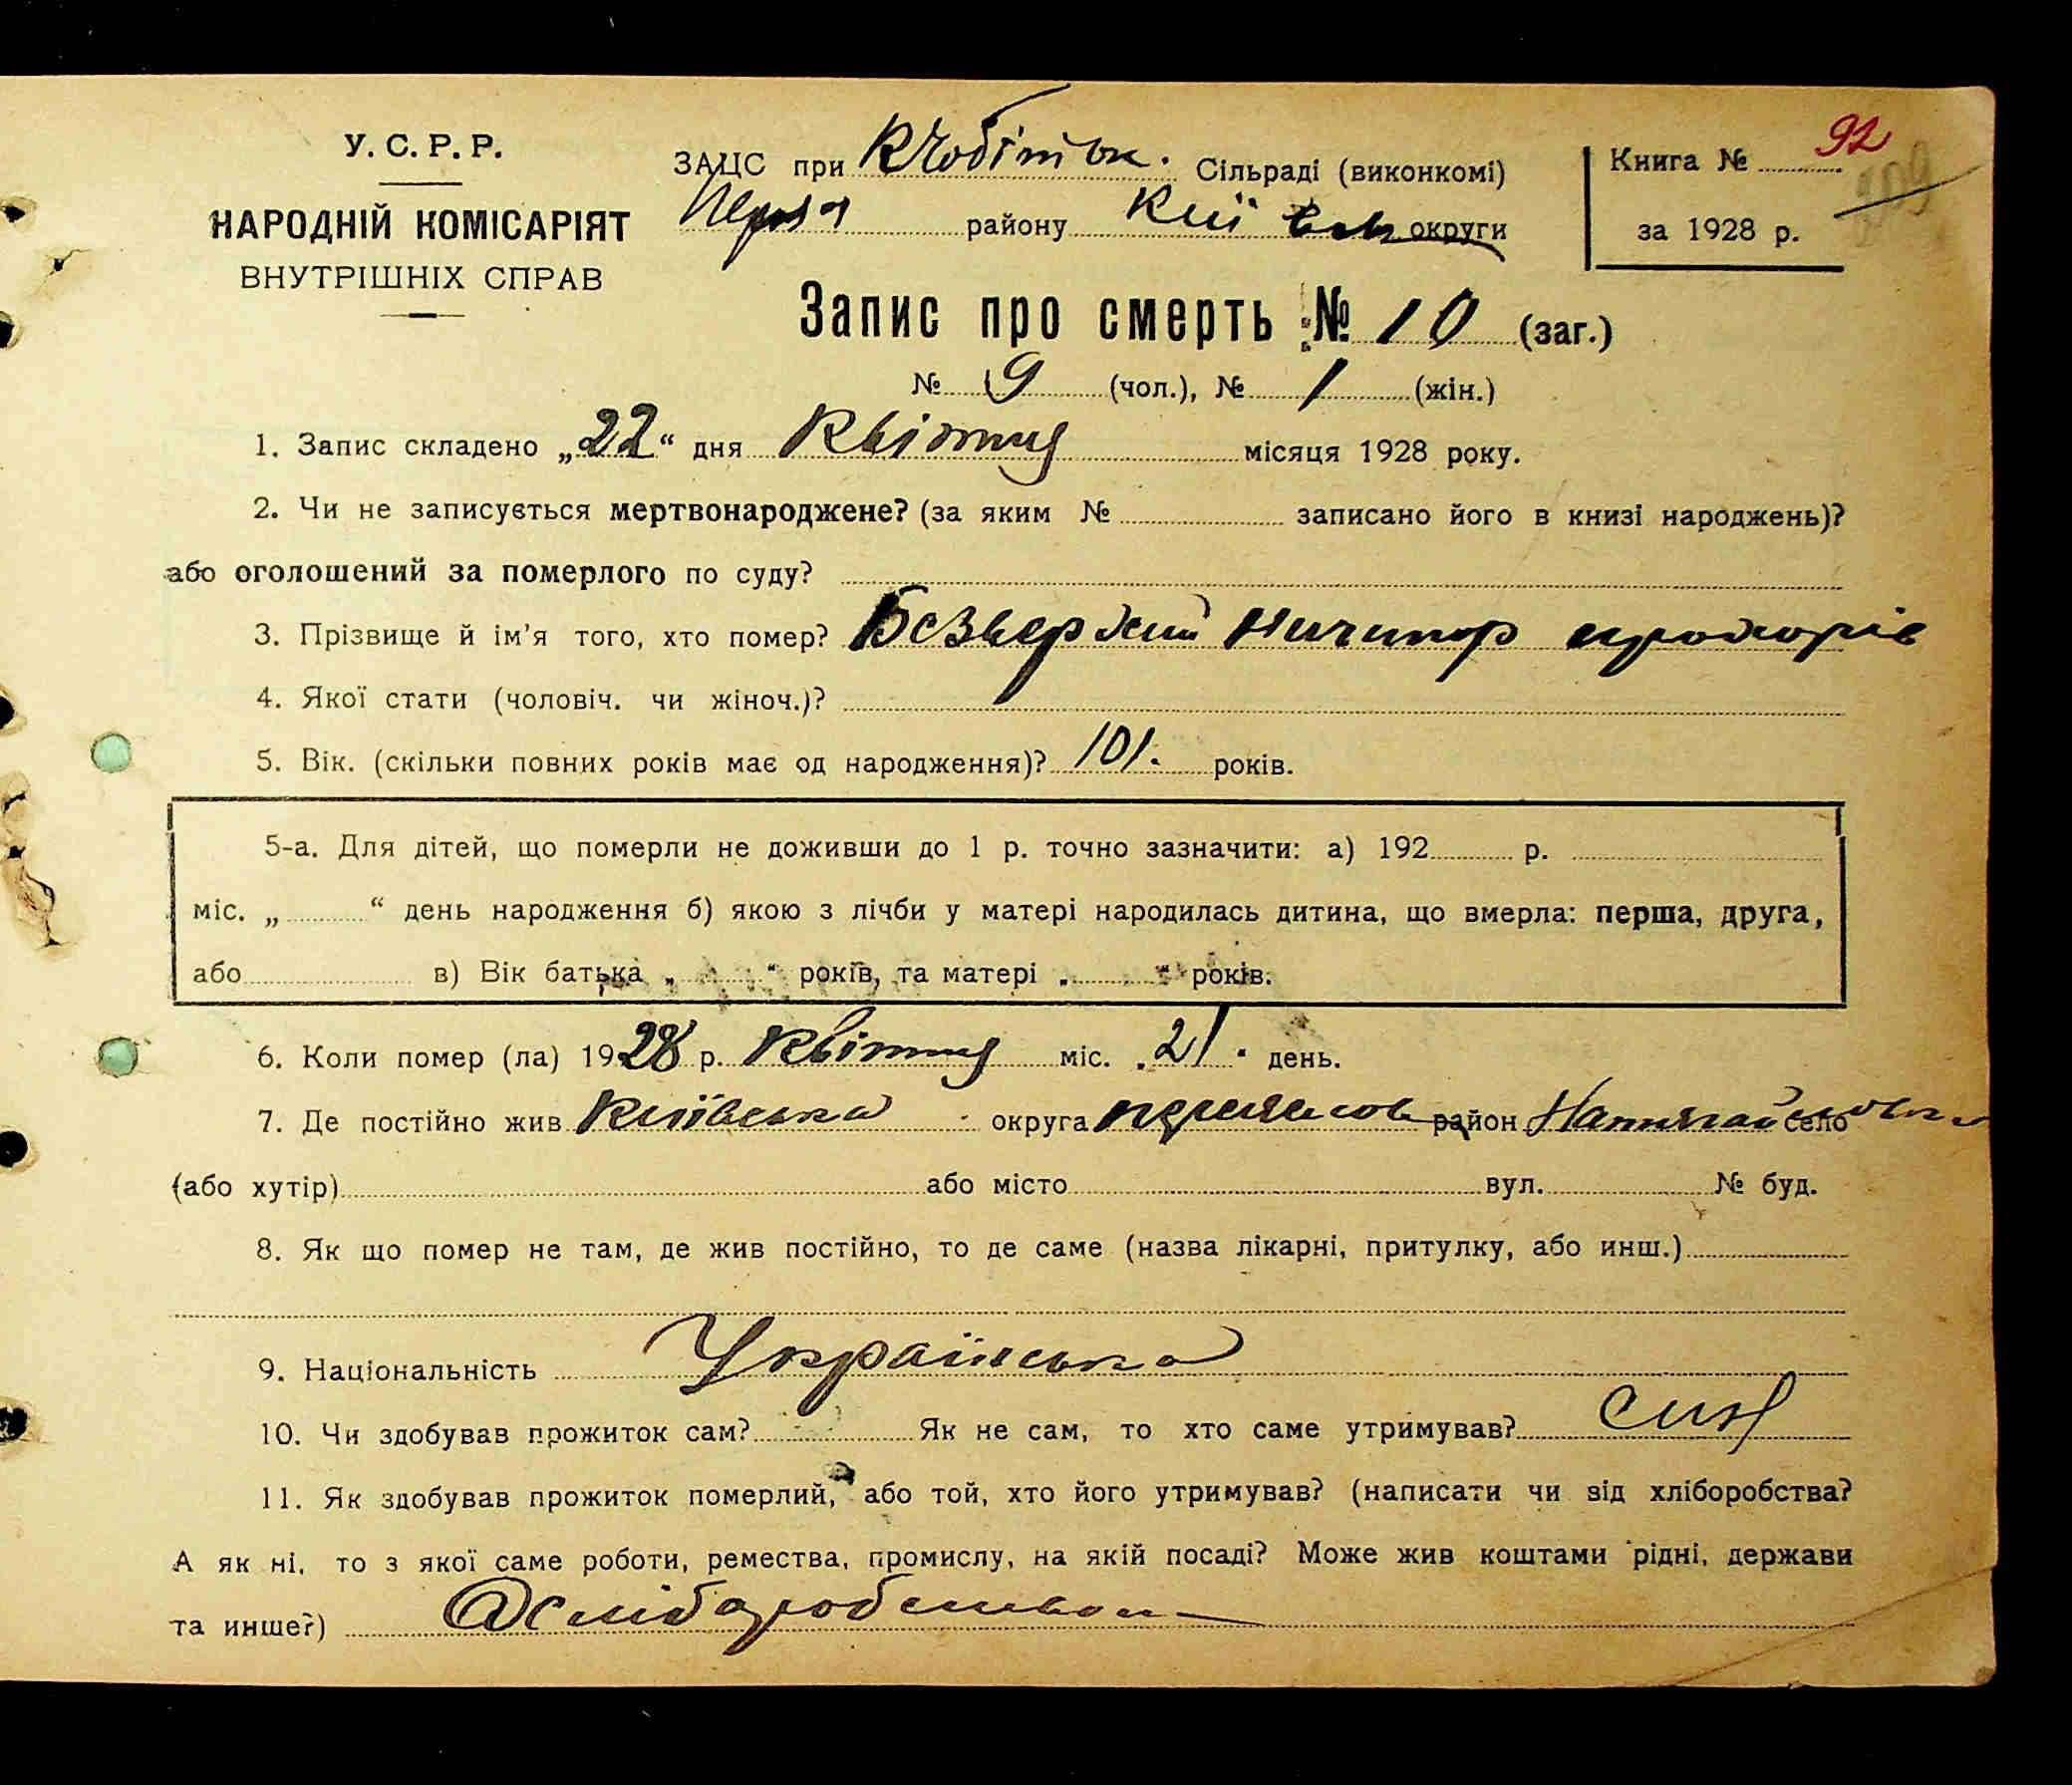 У.С.Р.Р.
НАРОДНІЙ КОМІСАРІЯТ
ВНУТРІШНІХ СПРАВ
ЗАЦС при Сільраді (виконкомі)
району Київськ округи
Книга № 92
за 1928 р.
Запис про смерть № 10 (заг.)
№ 9 (чол.), № 1 (жін.)
1. Запис складено „22“ дня Квітня місяця 1928 року.
2. Чи не записується мертвонароджене? (за яким № записано його в книзі народжень)?
або оголошений за померлого по суду?
3. Прізвище й ім’я того, хто помер? Безверхий Ничипор
4. Якої стати (чоловіч. чи жіноч.)?
5. Вік. (скільки повних років має од народження)? 101. років.
5-а. Для дітей, що померли не доживши до 1 р. точно зазначити: а) 192 р.
міс. „ “ день народження б) якою з лічби у матері народилась дитина, що вмерла: перша, друга,
або в) Вік батька „ “ років, та матері „ “ років.
6. Коли помер (ла) 1928 р. Квітня міс. „21“ день.
7. Де постійно жив Київська округа район село
(або хутір) або місто вул. № буд.
8. Як що помер не там, де жив постійно, то де саме (назва лікарні, притулку, або инш.)
9. Національність Українська
10. Чи здобував прожиток сам? Як не сам, то хто саме утримував? син
11. Як здобував прожиток померлий, або той, хто його утримував? (написати чи від хліборобства?
А як ні, то з якої саме роботи, ремества, промислу, на якій посаді? Може жив коштами рідні, держави
та инше?) Хліборобством